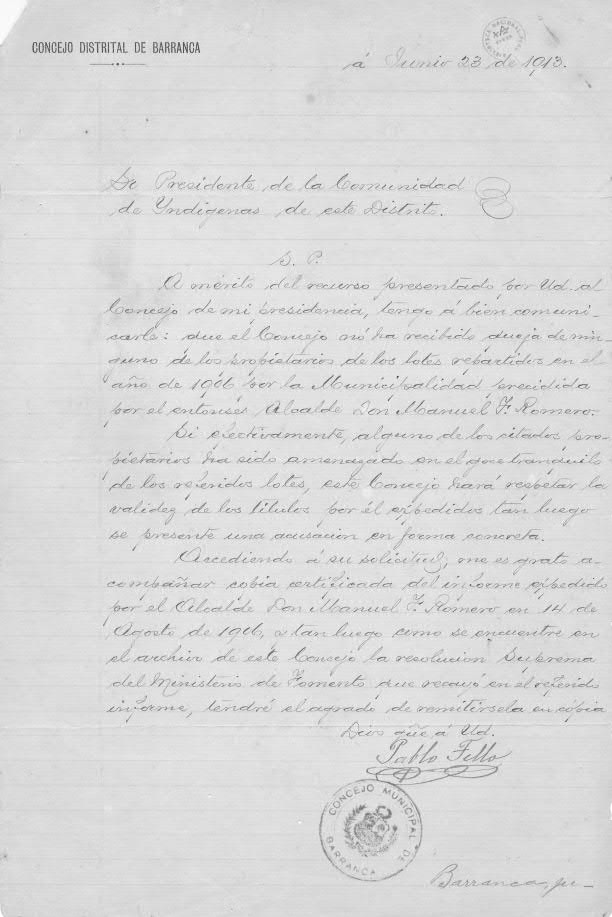 CONCEJO DISTRITAL DE BARRANCA
á Junio 23 de 1913.
Sr Presidente de la Comunidad
de Yndigenas de este Distrito.
S. P.
A mérito del recurso presentado por Ud. al
Concejo de mi presidencia, tengo á bien comuni-
carle: que el Concejo nó ha recibido queja de nin-
guno de los propietarios de los lotes repartidos en el
año de 1906 por la Municipalidad precidida
por el entonses Alcalde Don Manuel F. Romero.
Si efectivamente, alguno de los citados pro-
pietarios ha sido amenazado en el goce tranquilo
de los referidos lotes, este Concejo hará respetar la
validez de los títulos por él expedidos tan luego
se presente una acusacion en forma concreta.
Accediendo á su solicitud, me es grato a-
compañar copia certificada del informe expedido
por el Alcalde Don Manuel F. Romero en 14 de
Agosto de 1906, y tan luego como se encuentre en
el archivo de este Concejo la resolucion Suprema
del Ministerio de Fomento que recayó en el referido
informe, tendré el agrado de remitirsela en cópia
Dios gūe á Ud.
Pablo Fello
CONCEJO MUNICIPAL DE
BARRANCA
Barranca,